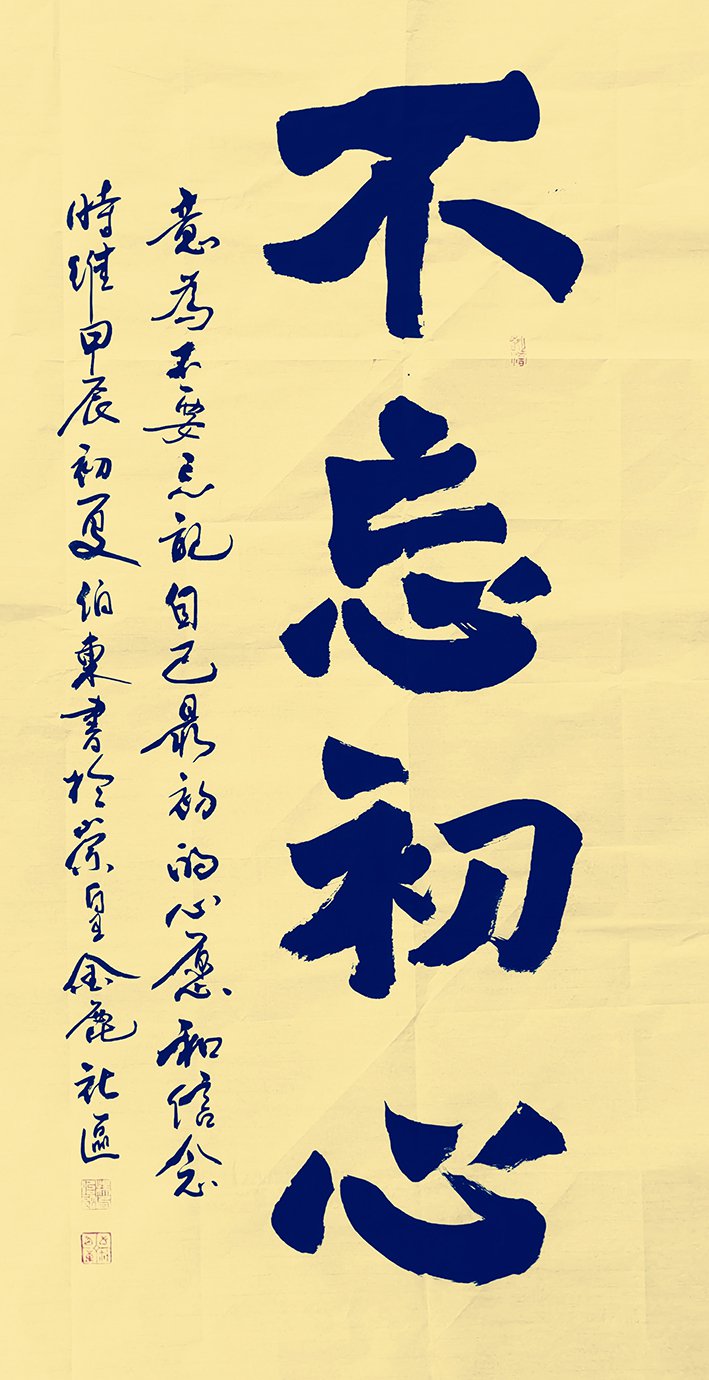 不忘初心
意為不要忘記自己最初的心愿和信念
時維甲辰初夏伯東書於榮皇金鹿社區